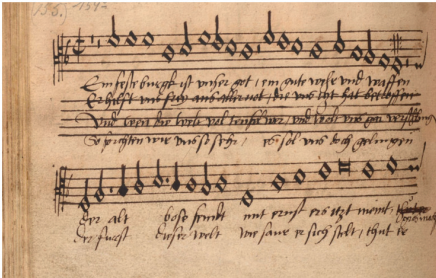 Ein feste burgk ist unser got, ein gute wehr und waffen
Er hilfft uns frey aus aller not, die uns itzt hat betroffen
Und wen die welt vol teufel wer, und wolt uns gar
So fürchten wir uns so sehr, es sol uns doch gelingen
der alt böse feindt mit ernst ers itzt meint,
der fürst dieser welt wie saur er sich stelt, thut er